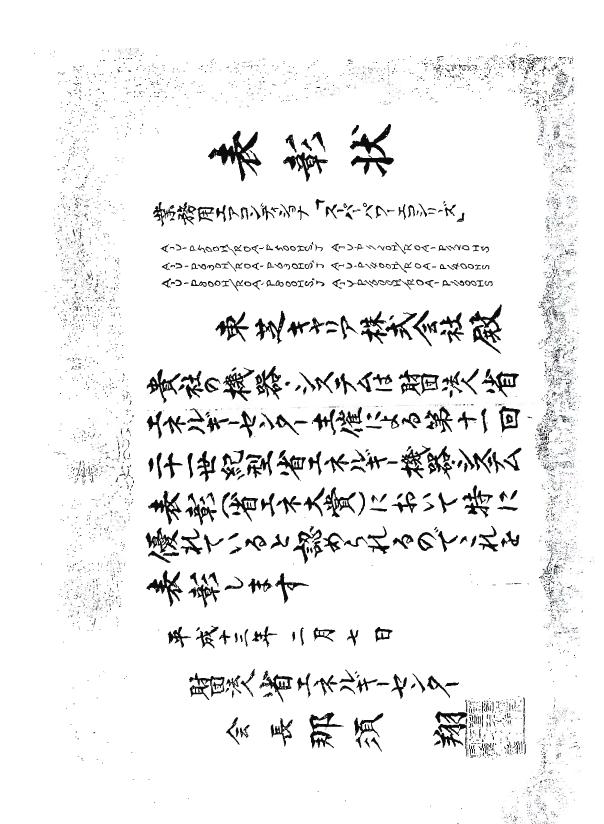 表彰状
業務用エアコンディショナ「スーパーパワーエコシリーズ」
東芝キヤリア株式会社 殿
貴社の機器・システムは財団法人省
エネルギーセンター主催による第十一回
二十一世紀型省エネルギー機器・システム
表彰(省エネ大賞)において特に
優れていると認められるのでこれを
表彰します
平成十三年 二月七日
財団法人省エネルギーセンター
会長 那須 翔